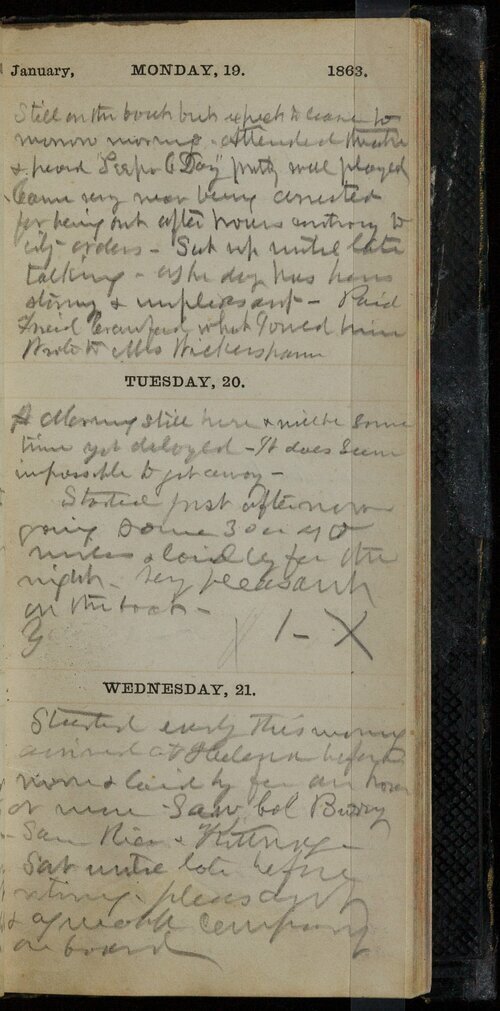 January, MONDAY, 19. 1863.
Still on the boat but expect to leave to
morrow morning. Attended theatre
& heard "Serfs O Day" pretty well played
Came very near being arrested
for being out after hours contrary to
city orders - Sat up until late
talking - as the day has been
stormy & unpleasant - Paid
Crawford what I owed him
Wrote to Mrs Wickersham
TUESDAY, 20.
A Morning still here & will be some
time yet delayed - It does seem
impossible to get away -
Started just after noon
going some 30 or 40
miles & laid by for the
night - Very pleasant
on the boat -
1 - X
WEDNESDAY, 21.
Started early this morning
arrived at Helena before
noon & laid by for an hour
or more - Saw Col Bussey
Sam Rice & Kittredge
Sat until late before
retiring - pleasant
& agreeable company
on board